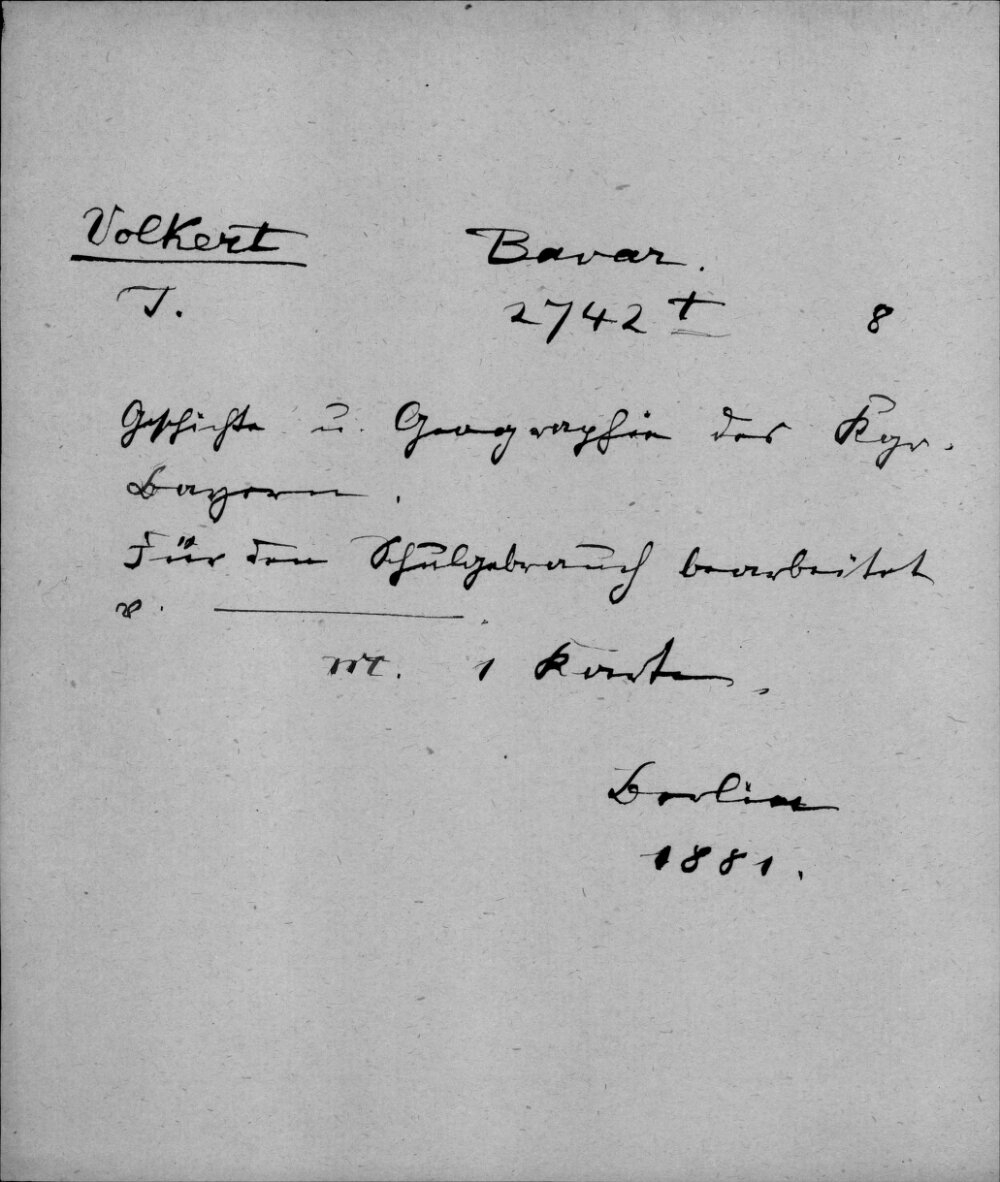 Volkert Bavar.
J. 2742 t 8
Geschichte u. Geographie des Kgr.
Bayern.
Für den Schulgebrauch bearbeitet
v. ———.
M. 1 Karte.
Berlin
1881.